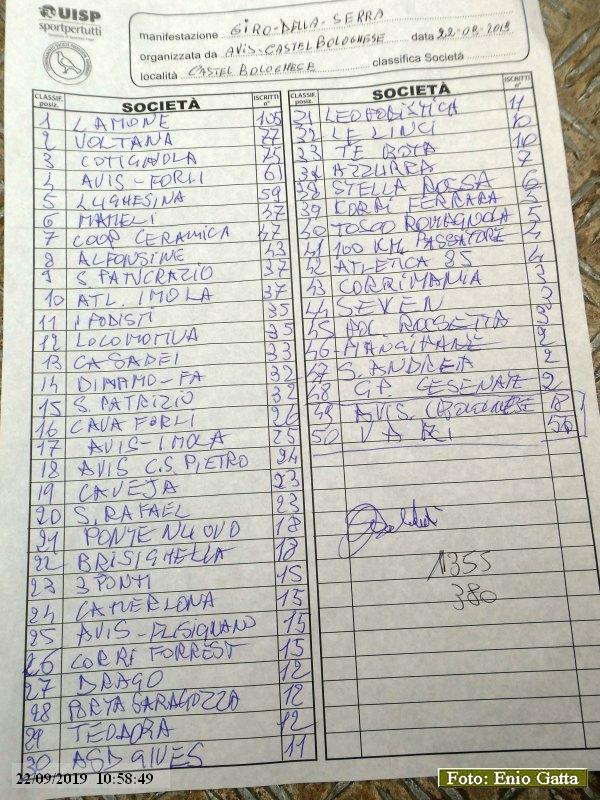 UISP
sportpertutti
manifestazione GIRO-DELLA-SERRA
organizzata da AVIS-CASTEL BOLOGNESE data 22-09-2019
località CASTEL BOLOGNESE classifica Società
CLASSIF. posiz. SOCIETÀ ISCRITTI n°
1 LAMONE 105
2 VOLTANA 77
3 COTIGNOLA 75
4 AVIS-FORLI 61
5 LUGHESINA 59
6 MAMELI
7 COOP CERAMICA 47
8 ALFONSINE 43
9 S. PANCRAZIO 37
10 ATL. IMOLA 37
11 I PODISTI 35
12 LOCOMOTIVA 35
13 CASADEI 33
14 DINAMO-FA 32
15 S. PATRIZIO 32
16 CAVA FORLI 26
17 AVIS-IMOLA 25
18 AVIS C.S. PIETRO 24
19 CAVEJA 23
20 S. RAFAEL 23
21 PONTE NUOVO 18
22 BRISIGHELLA 18
23 3 PONTI 15
24 CAMERLONA 15
25 AVIS-FUSIGNANO 15
26 CORRI FORREST 15
27 DRAGO 12
28 PORTA SARAGOZZA 12
29 TEODORA 12
30 ASD GIVES 11
CLASSIF. posiz. SOCIETÀ ISCRITTI n°
LEOPODISTICA 11
LE LINCI 10
TE BOTA 10
AZZURRA 7
38 STELLA ROSSA 6
39 CORRI FERRARA 5
40 TOSCO ROMAGNOLA 5
41 100 KM PASSATORE 4
42 ATLETICA 85 4
43 CORRIMANIA 3
44 SEVEN 3
45 POL. ROSSETTA
46 MANGIPANE 2
47 S. ANDREA 2
48 GP. CESENATE 2
49 AVIS. C. BOLOGNESE 18
50 VARI
1355
380
22/09/2019 10:58:49
Foto: Enio Gatta